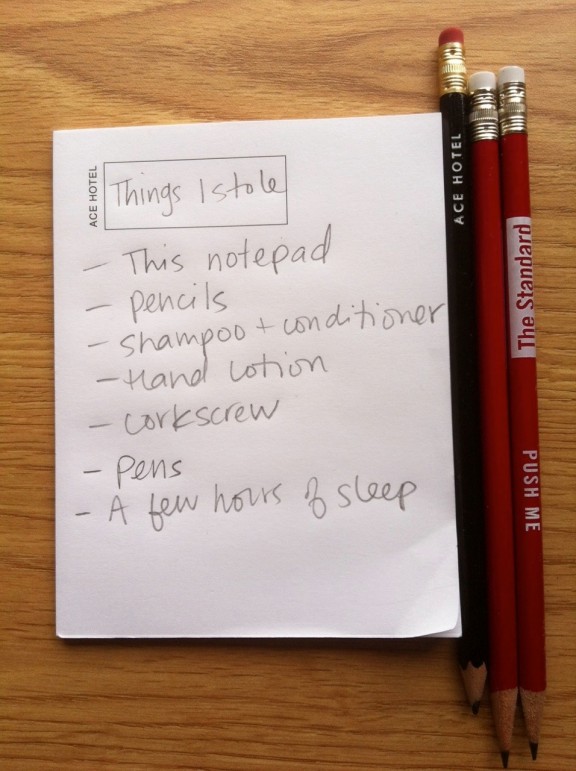 ACE HOTEL
Things I stole
- This notepad
- pencils
- shampoo + conditioner
- Hand lotion
- corkscrew
- pens
- A few hours of sleep
ACE HOTEL
The Standard
PUSH ME